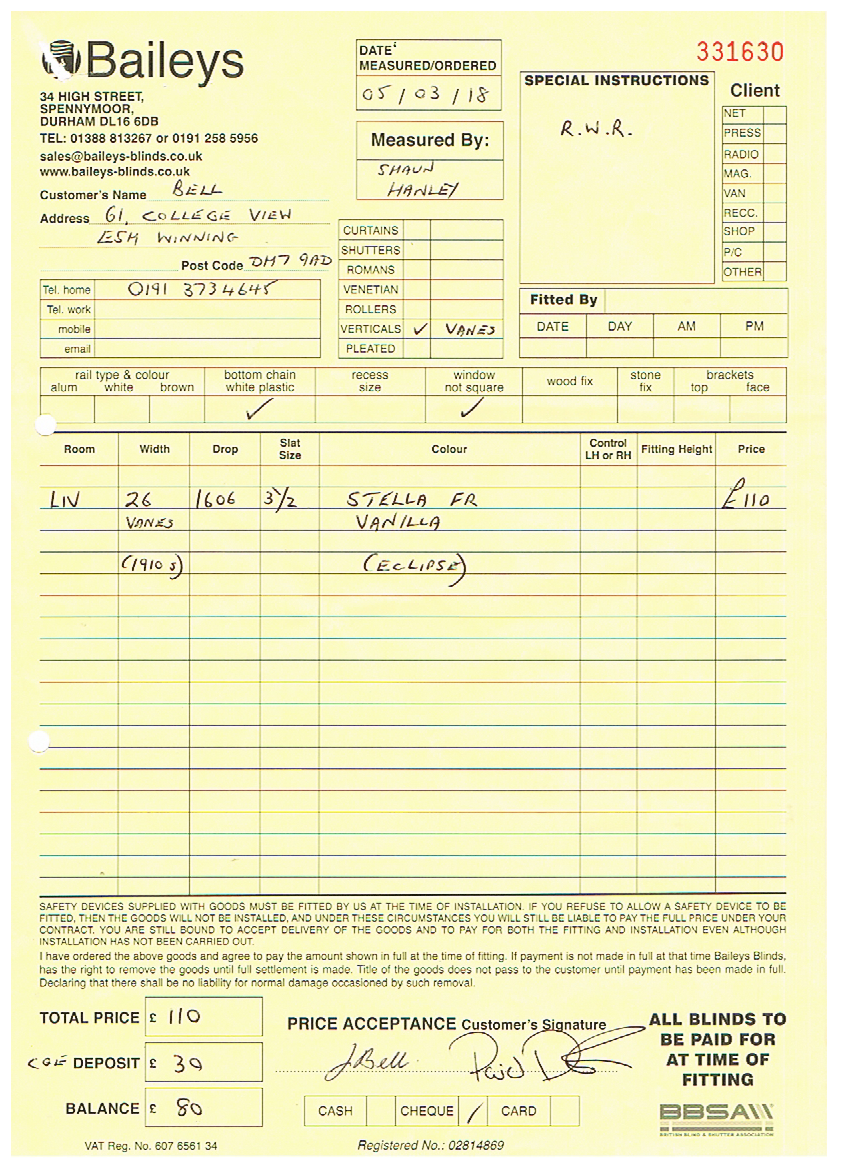 Baileys
34 HIGH STREET,
SPENNYMOOR,
DURHAM DL16 6DB
TEL: 01388 813267 or 0191 258 5956
sales@baileys-blinds.co.uk
www.baileys-blinds.co.uk
Customer's Name BELL
Address 61, COLLEGE VIEW
ESH WINNING
Post Code DH7 9AD
Tel. home 0191 3734645
Tel. work
mobile
email
DATE
MEASURED/ORDERED
05/03/18
Measured By:
SHAUN
HANLEY
CURTAINS
SHUTTERS
ROMANS
VENETIAN
ROLLERS
VERTICALS ✓ VANES
PLEATED
331630
SPECIAL INSTRUCTIONS
R.W.R.
Client
NET
PRESS
RADIO
MAG.
VAN
RECC.
SHOP
P/C
OTHER
Fitted By
DATE DAY AM PM
rail type & colour bottom chain recess window wood fix stone brackets
alum white brown white plastic size not square fix top face
✓ ✓
Room Width Drop Slat Size Colour Control LH or RH Fitting Height Price
LIV 26 1606 3½ STELLA FR £110
VANES VANILLA
(1910 s) (ECLIPSE)
SAFETY DEVICES SUPPLIED WITH GOODS MUST BE FITTED BY US AT THE TIME OF INSTALLATION. IF YOU REFUSE TO ALLOW A SAFETY DEVICE TO BE
FITTED, THEN THE GOODS WILL NOT BE INSTALLED, AND UNDER THESE CIRCUMSTANCES YOU WILL STILL BE LIABLE TO PAY THE FULL PRICE UNDER YOUR
CONTRACT. YOU ARE STILL BOUND TO ACCEPT DELIVERY OF THE GOODS AND TO PAY FOR BOTH THE FITTING AND INSTALLATION EVEN ALTHOUGH
INSTALLATION HAS NOT BEEN CARRIED OUT.
I have ordered the above goods and agree to pay the amount shown in full at the time of fitting. If payment is not made in full at that time Baileys Blinds,
has the right to remove the goods until full settlement is made. Title of the goods does not pass to the customer until payment has been made in full.
Declaring that there shall be no liability for normal damage occasioned by such removal.
TOTAL PRICE £ 110
CGE DEPOSIT £ 30
BALANCE £ 80
PRICE ACCEPTANCE Customer's Signature
J Bell Paid
CASH CHEQUE / CARD
ALL BLINDS TO
BE PAID FOR
AT TIME OF
FITTING
BBSA
BRITISH BLIND & SHUTTER ASSOCIATION
VAT Reg. No. 607 6561 34
Registered No.: 02814869